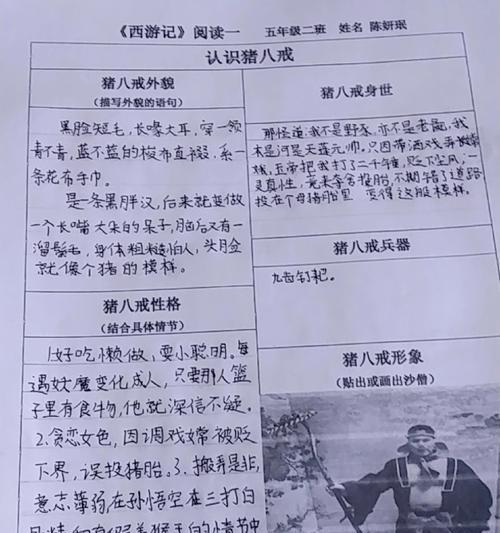 《西游记》阅读一 五年级二班 姓名 陈妍珉
认识猪八戒
猪八戒外貌
(描写外貌的语句)
黑脸短毛,长喙大耳,穿一领
青不青,蓝不蓝的梭布直裰,系一
条花布手巾。
是一条黑胖汉,后来就变做
一个长嘴大耳的呆子,脑后又有一
溜鬃毛,身体粗糙怕人,头脸
就像个猪的模样。
猪八戒性格
(结合具体情节)
1.好吃懒做,耍小聪明。每
遇妖魔变化成人,只要那人篮
子里有食物,他就深信不疑。
2.贪恋女色,因调戏嫦被贬
下界,误投猪胎。3.搬弄是非,
意志薄弱,在孙悟空在三打白
猪八戒身世
那怪道:我不是野豕,亦不是老彘,我
本是河是天蓬元帅,只因带酒戏弄嫦
娥,玉帝把我打了二千锤,贬下尘凡,一
灵真性,竟来夺舍投胎,不期错了道路,
投在个母猪胎里 变得这般模样。
猪八戒兵器
九齿钉耙。
猪八戒形象
(贴出或画出沙僧)